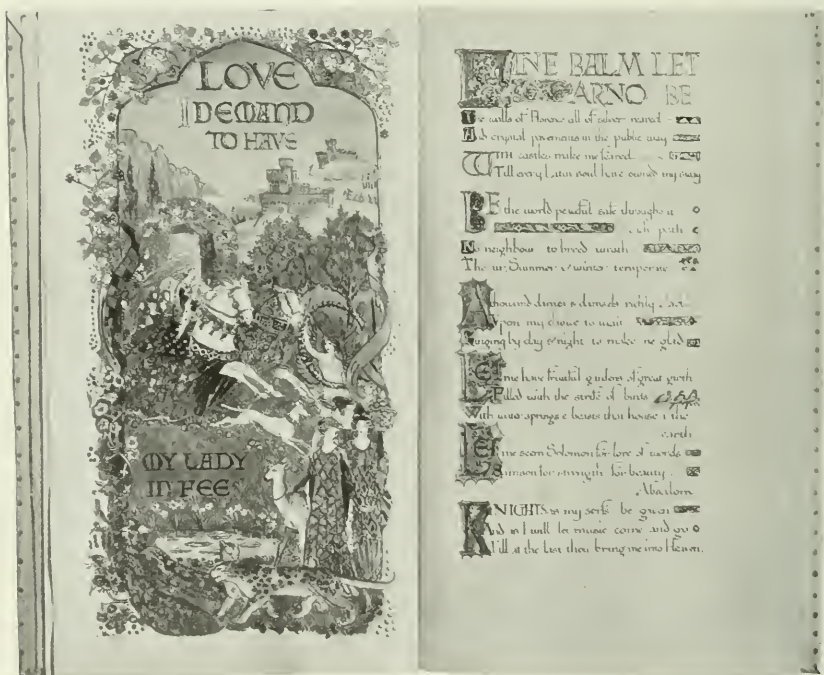 LOVE
I DEMAND
TO HAVE
MY LADY
IN FEE
FINE BALM LET
ARNO BE
The walls of Florence all of silver reared
And crystal pavements in the public way
WITH castles make me feared
Till every Latin soul have owned my sway
BE the world peaceful safe throughout
each path
No neighbour to breed wrath
The air Summer & winter temperate
A thousand dames & damsels richly clad
Upon my choice to wait
Singing by day & night to make me glad
LET me have fruitful gardens of great girth
Filled with the strife of birds
With water springs & beasts that house i the
earth
LET me seem Solomon for lore of words
Samson for strength for beauty
Absalom
KNIGHTS as my serfs be given
And as I will let music come and go
Till at the last thou bring me into Heaven.